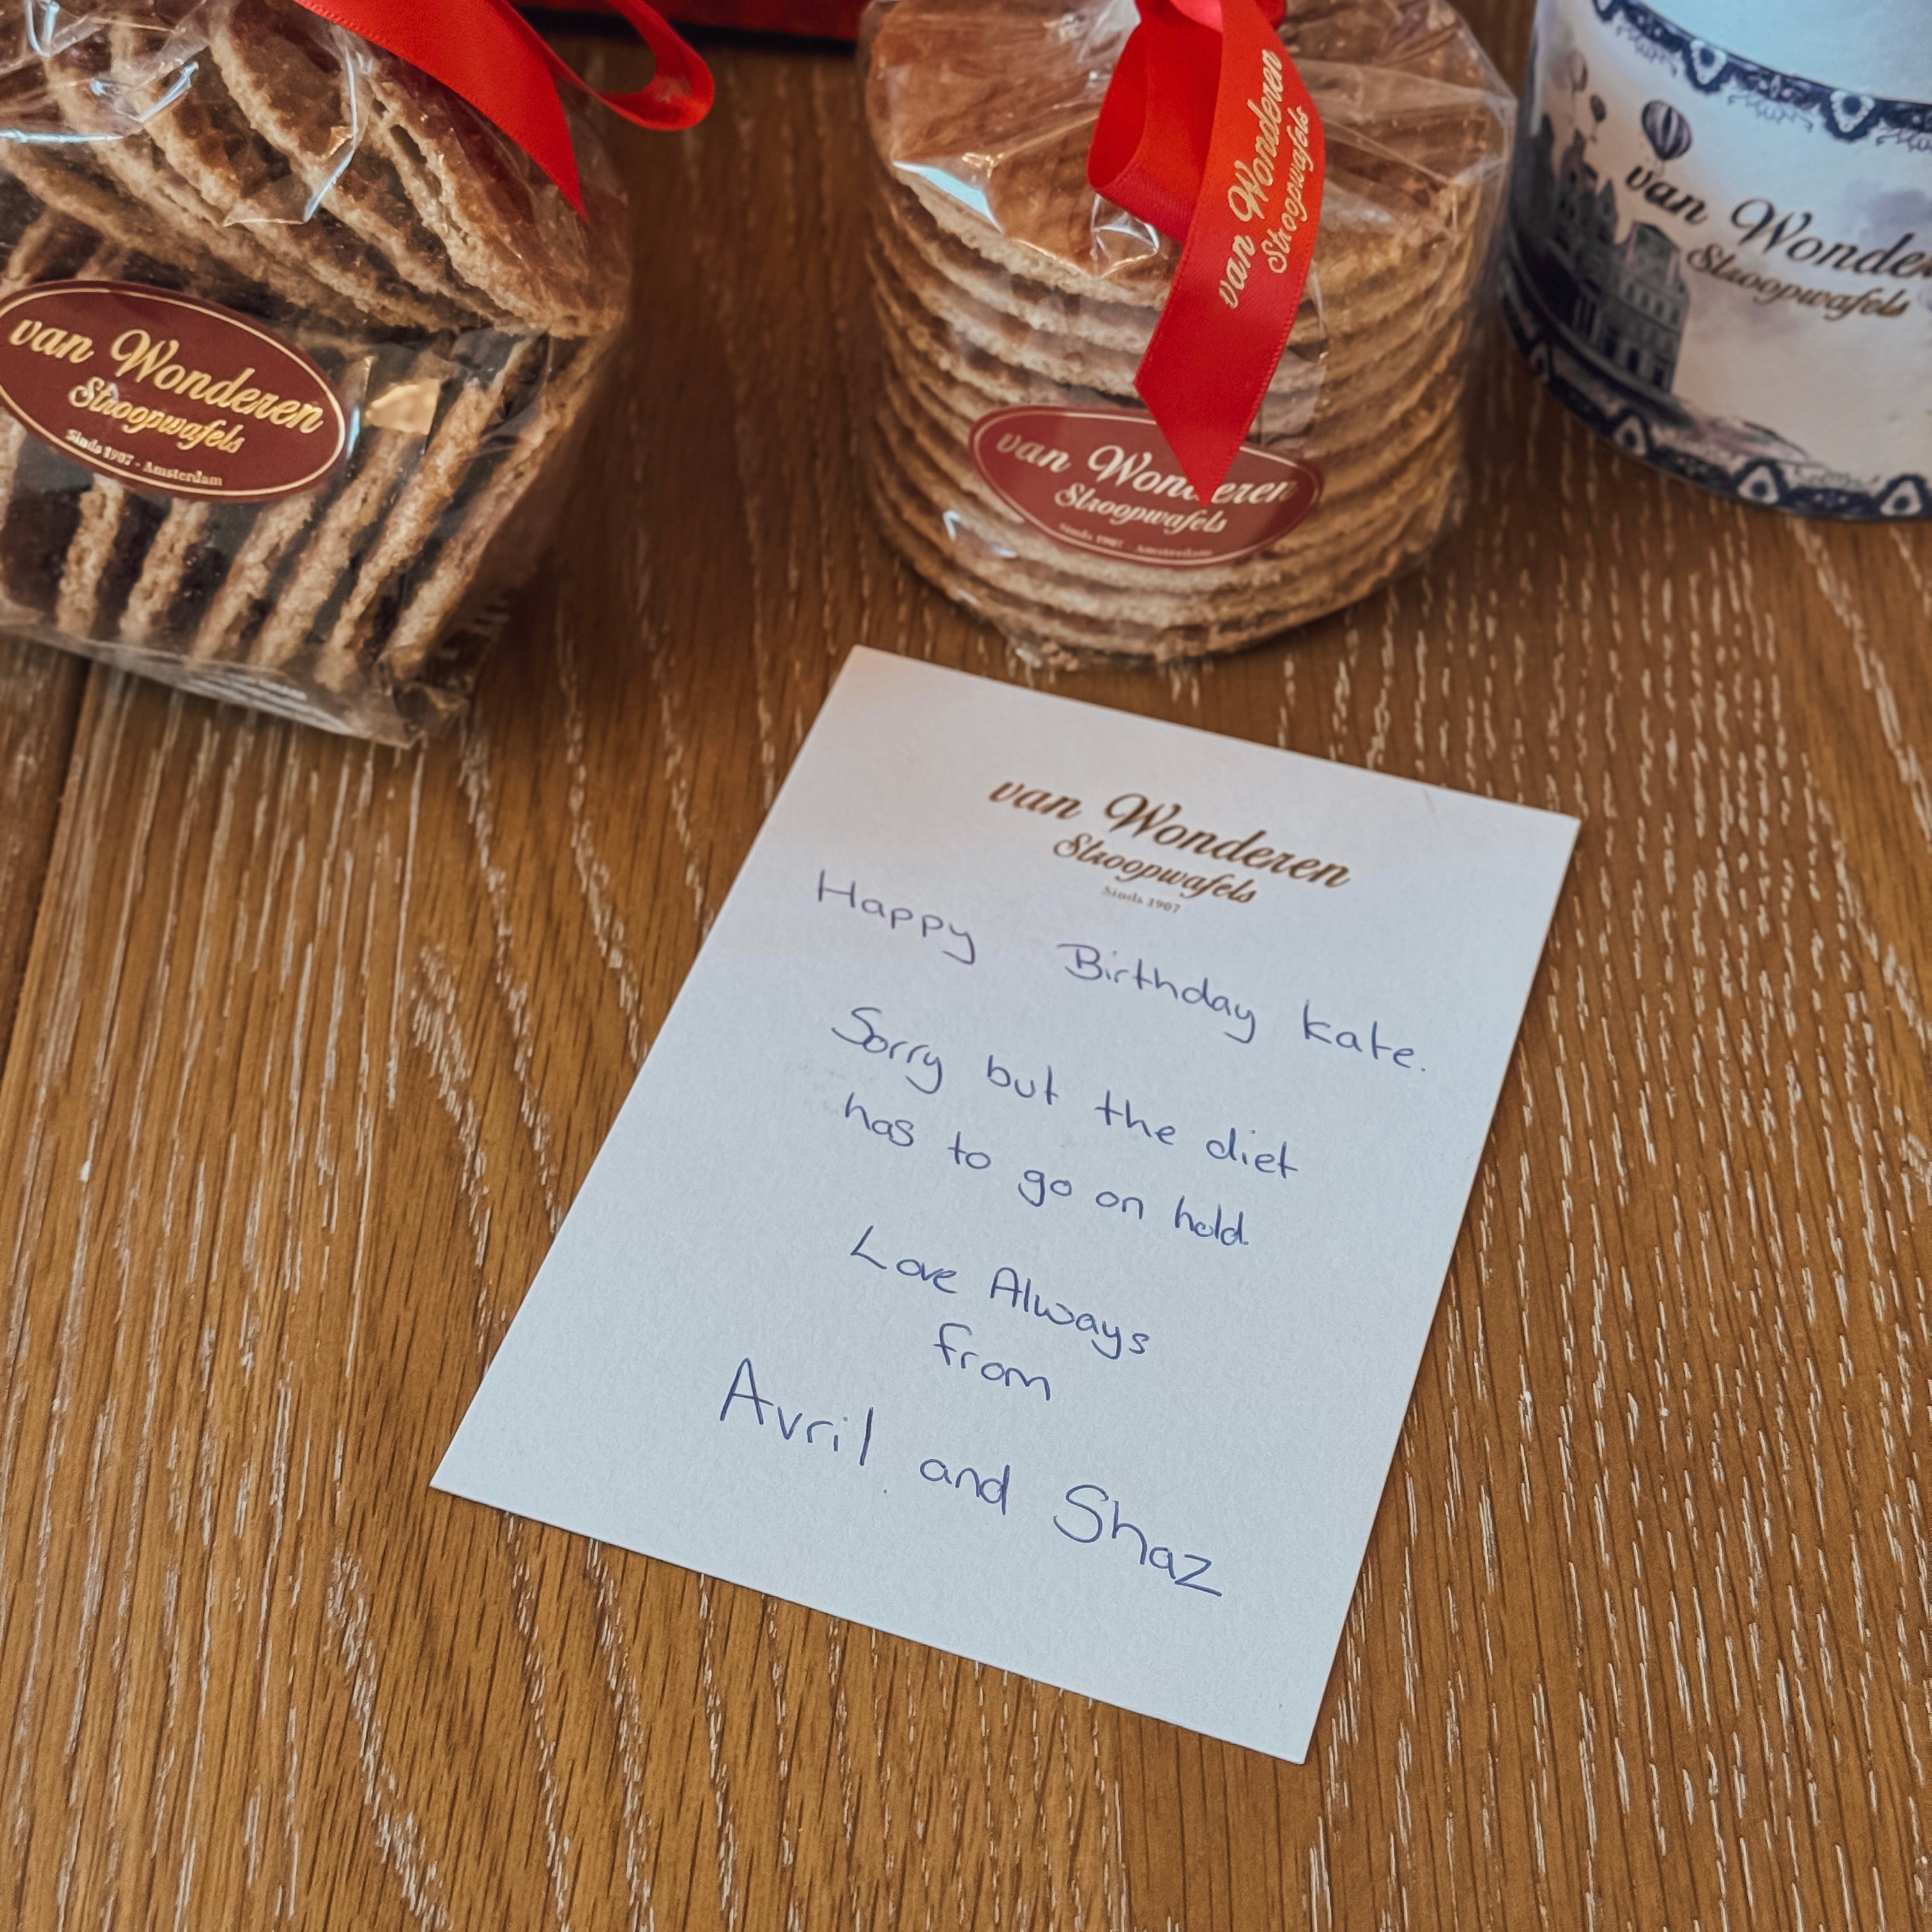 van Wonderen
Stroopwafels
Sinds 1907 - Amsterdam
van Wonderen
Stroopwafels
van Wonderen
Stroopwafels
Sinds 1907 - Amsterdam
van Wonderen
Stroopwafels
van Wonderen
Stroopwafels
Sinds 1907
Happy Birthday Kate.
Sorry but the diet
has to go on hold
Love Always
from
Avril and Shaz